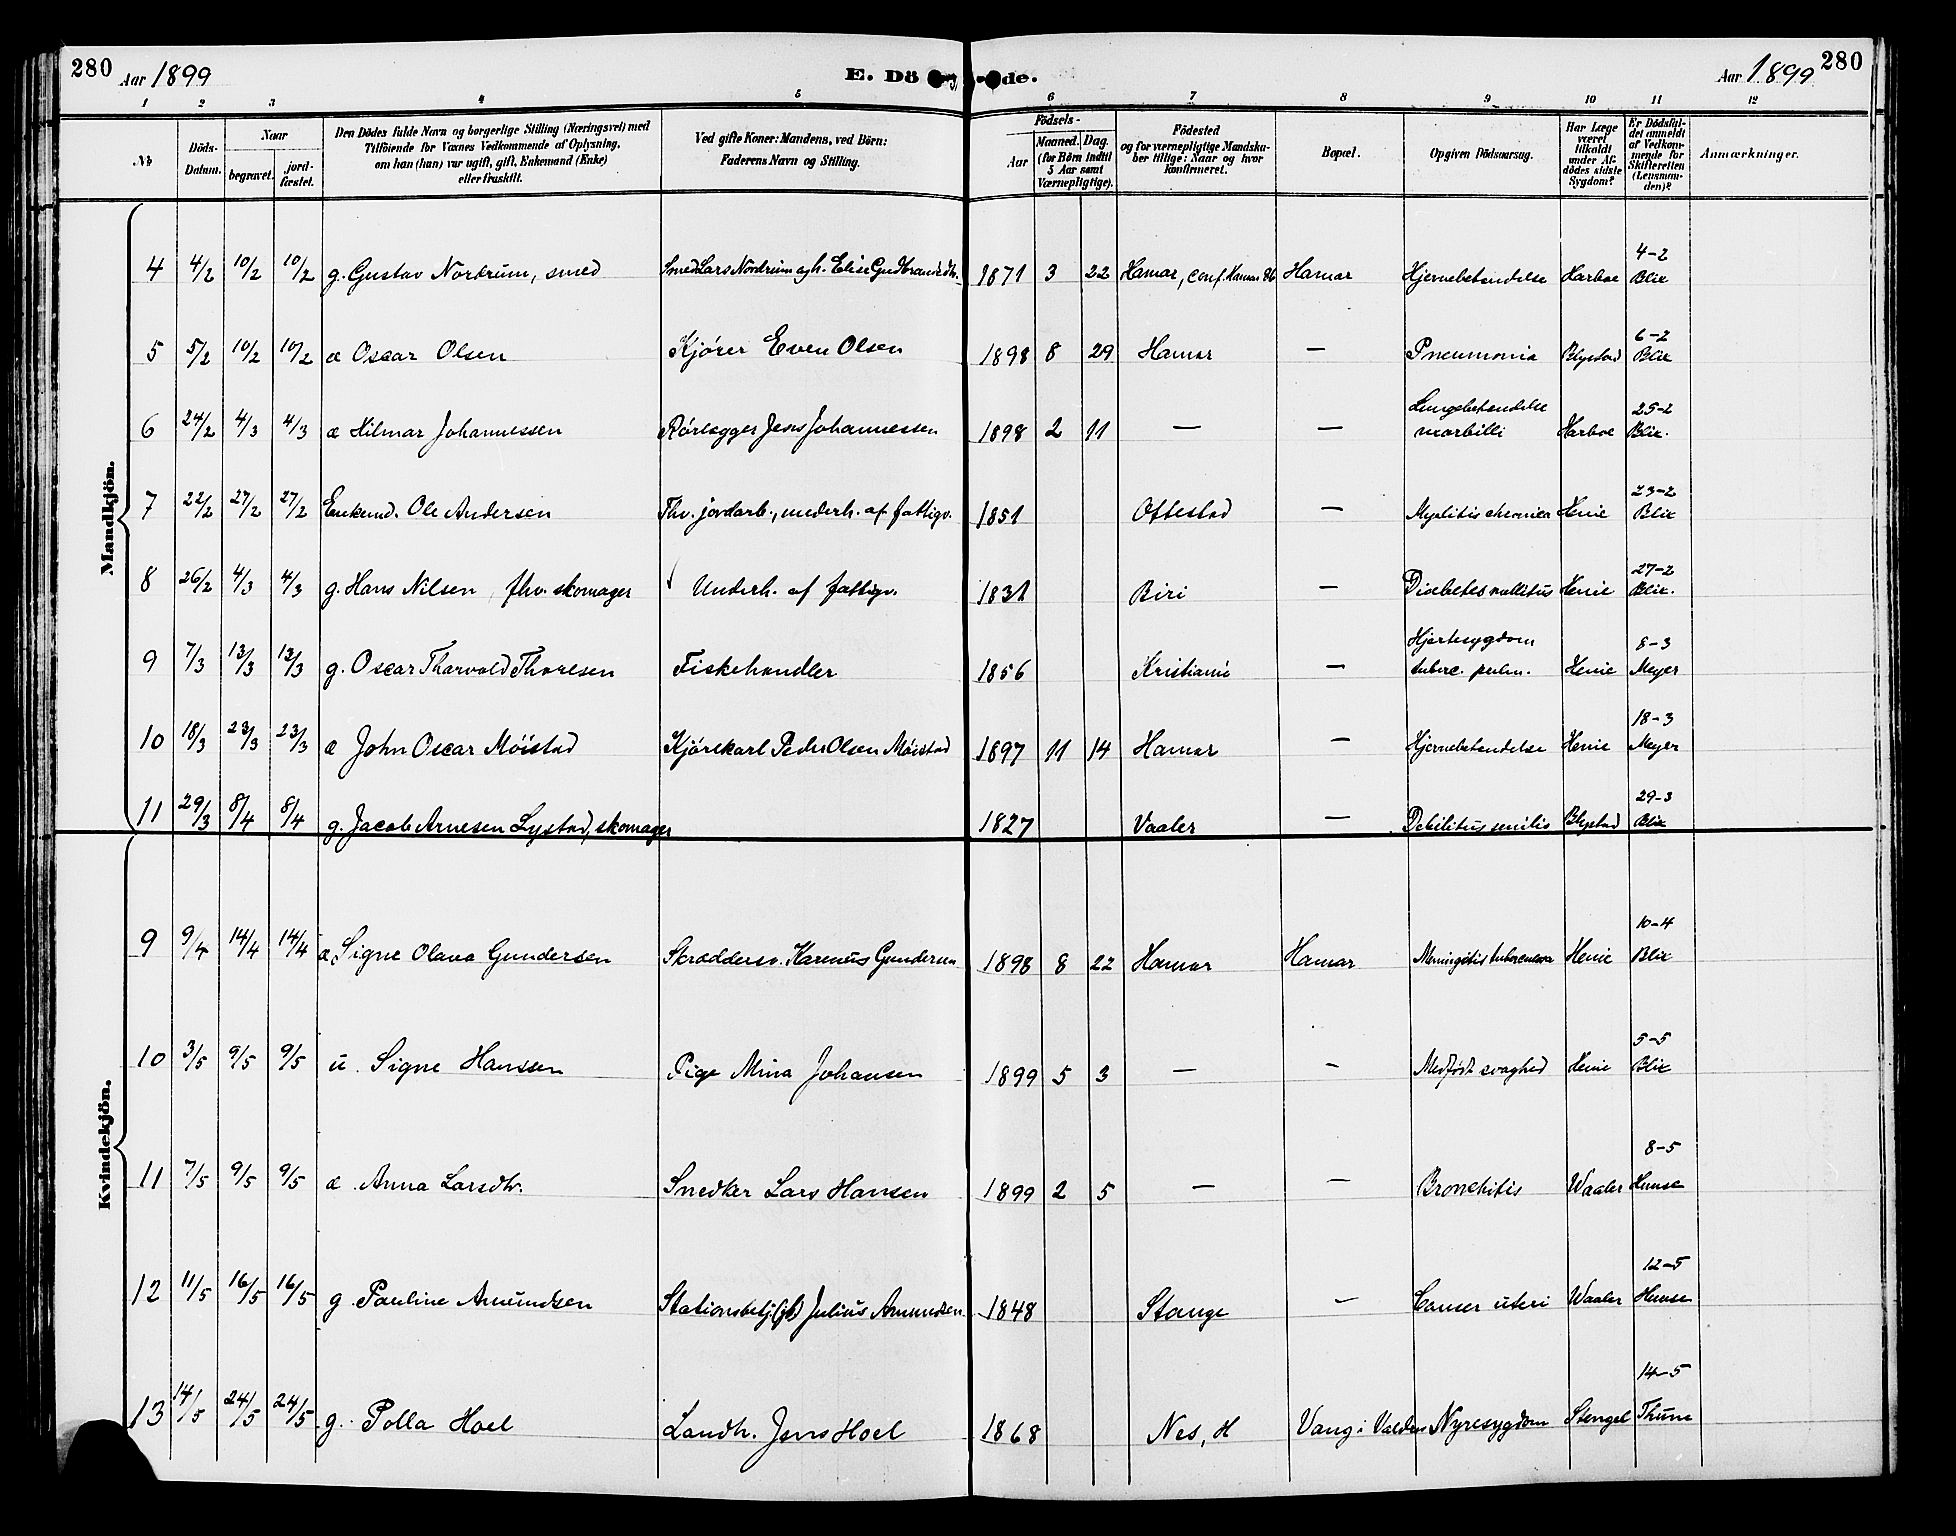 280 Aar 1899 E. Dö de. Aar 1899 280
1 2 3 4 5 6 7 8 9 10 11 12
№ Döds-Datum. Naar begravet. jord-fæstet. Den Dödes fulde Navn og borgerlige Stilling (Næringsvei) med Tilföiende for Voxnes Vedkommende af Oplysning, om han (hun) var ugift, gift, Enkemand (Enke) eller fraskilt. Ved gifte Koner: Mandens, ved Börn: Faderens Navn og Stilling. Födsels- Aar Maaned. Dag. (for Börn indtil 5 Aar samt Værnepligtige). Födested og for værnepligtige Mandska-ber tillige: Naar og hvor konfirmeret. Bopæl. Opgiven Dödsaarsag. Har Læge været tilkaldt under Af-dödes sidste Sygdom? Er Dödsfal-det anmeldt af Vedkom-mende for Skifteretten (Lensman-den)? Anmærkninger.
Mandkjön.
4 4/2 10/2 10/2 g. Gustav Nordrum, smed Smed Lars Nordrum og h. Elise Gudbrandsdtr. 1871 3 22 Hamar, conf. Hamar Hamar Hjernebetendelse Harboe 4-2 Blix
5 5/2 10/2 10/2 æ Oscar Olsen Kjörer Even Olsen 1898 8 29 Hamar — Pneumonia Blystad 6-2 Blix
6 24/2 4/3 4/3 æ Hilmar Johannessen Rörlegger Jens Johannessen 1898 2 11 — — Lungebetendelse morbilli Harboe 25-2 Blix.
7 22/2 27/2 27/2 Enkemd. Ole Andersen Fhv. jordarb., underh. af fattigv. 1851 Ottestad — Myelitis chronica Henie 23-2 Blix
8 26/2 4/3 4/3 g. Hans Nilsen, fhv. skomager Underh. af fattigv. 1831 Biri — Diabetes mellitus Henie 27-2 Blix.
9 7/3 13/3 13/3 g. Oscar Tharvald Thoresen Fiskehandler 1856 Kristiania — Hjertesygdom tuberc. pulm. Henie 8-3 Meyer
10 18/3 23/3 23/3 æ John Oscar Möistad Kjörekarl Peder Olsen Möistad 1897 11 14 Hamar — Hjernebetendelse Henie 18-3 Meyer
11 29/3 8/4 8/4 g. Jacob Arnesen Lystad, skomager 1827 Vaaler — Debilitus senilis Blystad 29-3 Blix
Kvindekjön.
9 9/4 14/4 14/4 æ Signe Olava Gundersen Skræddersv. Karenus Gundersen 1898 8 22 Hamar Hamar Meningitis tuberculosa Henie 10-4 Blix
10 3/5 9/5 9/5 u. Signe Hanssen Pige Mina Johansen 1899 5 3 — — Medfödt svaghed Henie 5-5 Blix
11 7/5 9/5 9/5 æ. Anna Larsdtr. Snedker Lars Hansen 1899 2 5 — — Bronchitis Waaler 8-5
12 11/5 16/5 16/5 g. Pauline Amundsen Stationsbetj. Julius Amundsen 1848 Stange — Cancer uteri Waaler 12-5
13 14/5 24/5 24/5 g. Polla Hoel Landh. Jens Hoel 1868 Nes, H Vang i Valdres Nyresygdom Stengel 14-5 Thune